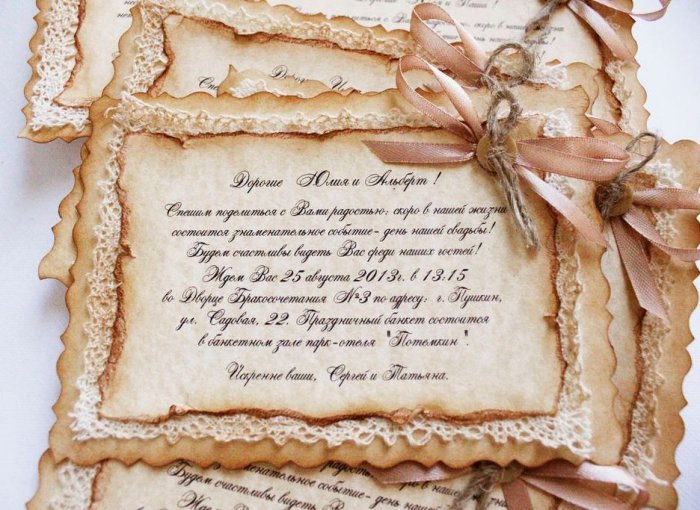 Дорогие Юлия и Альберт!
Спешим поделиться с Вами радостью: скоро в нашей жизни
состоится знаменательное событие- день нашей свадьбы!
Будем счастливы видеть Вас среди наших гостей!
Ждем Вас 25 августа 2013г. в 13:15
во Дворце Бракосочетания №3 по адресу: г. Пушкин,
ул. Садовая, 22. Праздничный банкет состоится
в банкетном зале парк-отеля "Потемкин".
Искренне ваши, Сергей и Татьяна.
знаменательное событие- день нашей
Будем счастливы видеть Вас среди